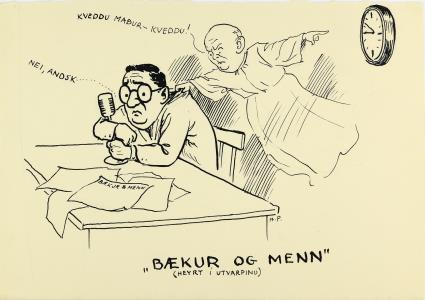 KVEDDU MAÐUR - KVEDDU!
NEI, ANDSK......
BÆKUR & MENN
H.P.
„BÆKUR OG MENN"
(HEYRT Í UTVARPINU)